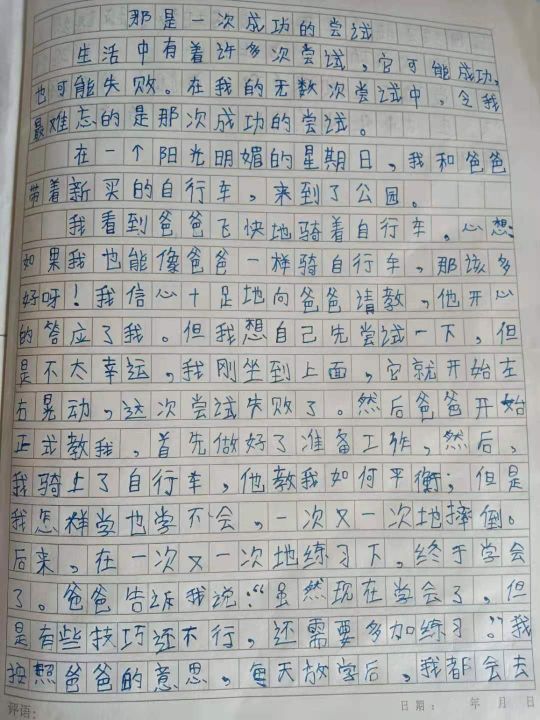 那是一次成功的尝试
生活中有着许多次尝试，它可能成功，
也可能失败。在我的无数次尝试中，令我
最难忘的是那次成功的尝试。
在一个阳光明媚的星期日，我和爸爸
带着新买的自行车，来到了公园。
我看到爸爸飞快地骑着自行车。心想：
如果我也能像爸爸一样骑自行车，那该多
好呀！我信心十足地向爸爸请教，他开心
的答应了我。但我想自己先尝试一下，但
是不太幸运，我刚坐到上面，它就开始左
右晃动，这次尝试失败了。然后爸爸开始
正式教我，首先做好了准备工作，然后，
我骑上了自行车，他教我如何平衡；但是
我怎样学也学不会，一次又一次地摔倒。
后来，在一次又一次地练习下，终于学会
了。爸爸告诉我说：“虽然现在学会了，但
是有些技巧还不行，还需要多加练习。”我
按照爸爸的意思，每天放学后，我都会去
评语： 日期： 年 月 日